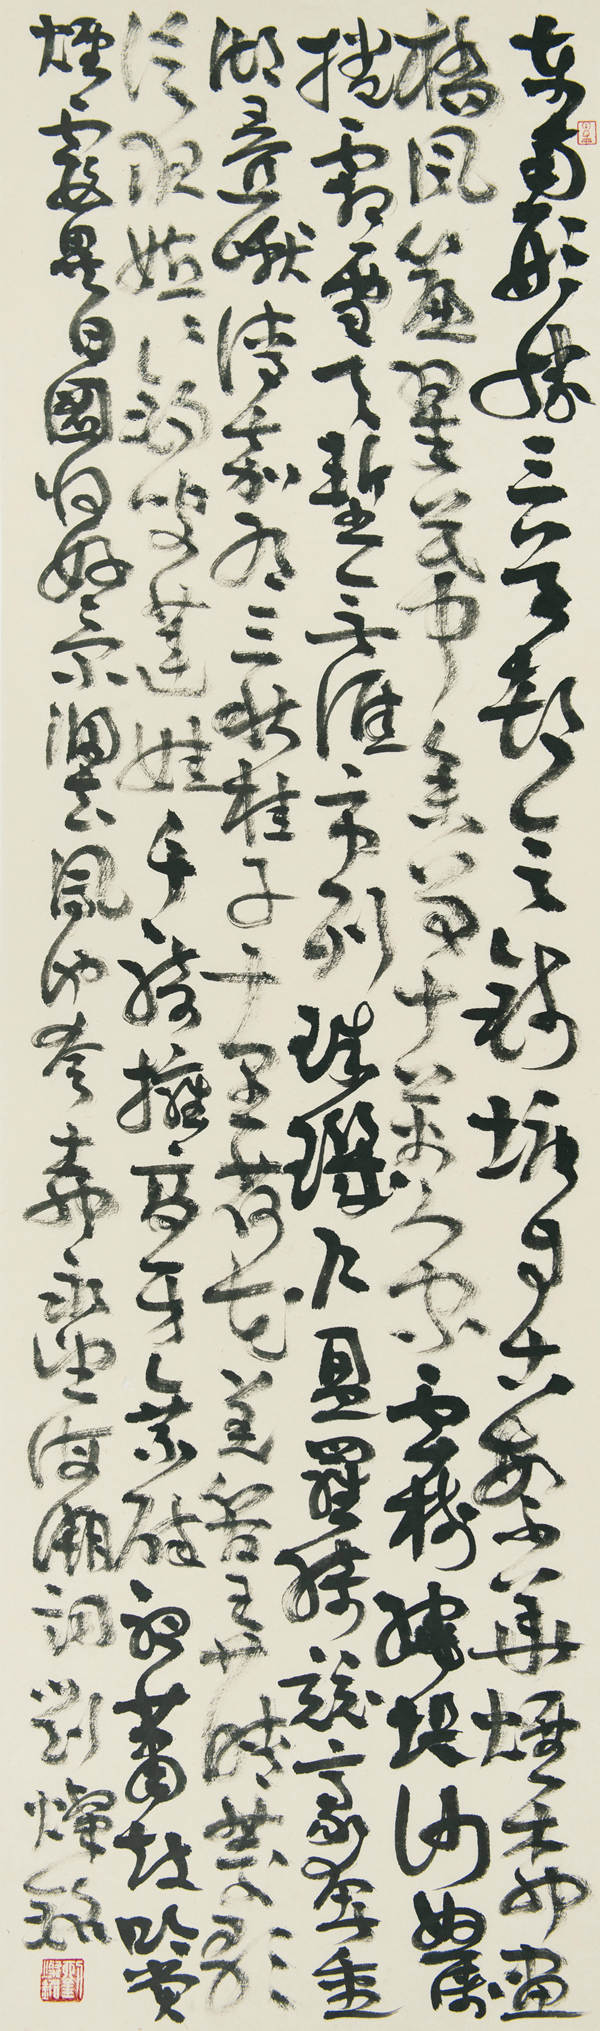 東南形勝三吳都會錢塘自古繁華煙柳畫
橋風簾翠幕參差十萬人家雲樹繞堤沙怒濤
捲霜雪天塹無涯市列珠璣户盈羅綺競豪奢重
湖疊巘清嘉有三秋桂子十里荷花羌管弄晴菱歌
泛夜嬉嬉釣叟蓮娃千騎擁高牙乘醉聽簫鼓吟賞
煙霞異日圖將好景歸去鳳池夸 柳永望海潮詞 劉燦銘